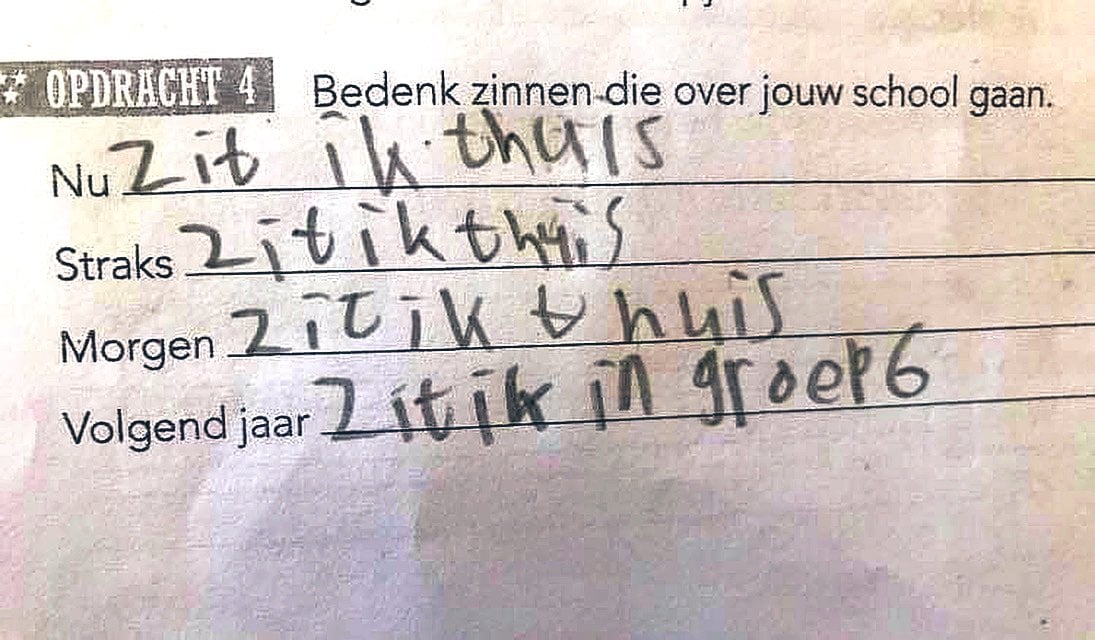 OPDRACHT 4 Bedenk zinnen die over jouw school gaan.
Nu Zit ik thuis
Straks Zit ik thuis
Morgen Zit ik thuis
Volgend jaar Zit ik in groep 6